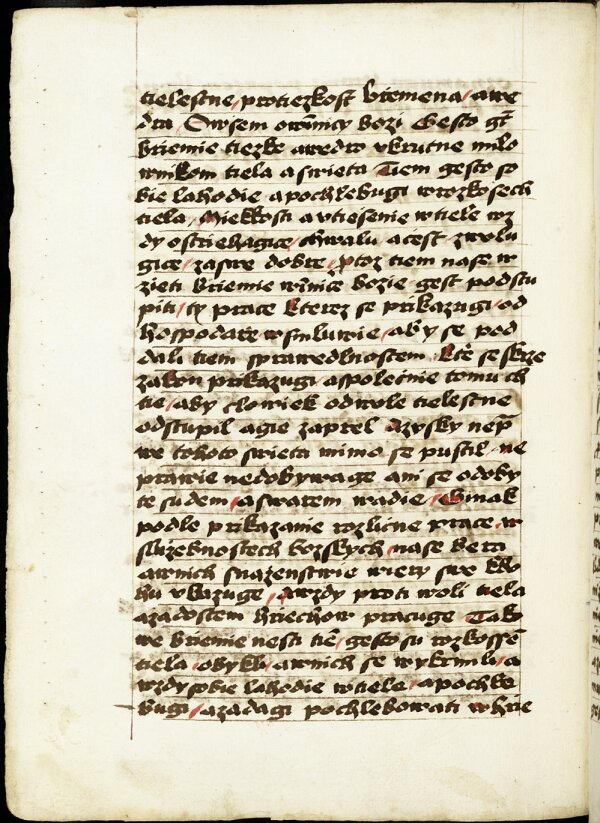 tielestne protiezkost bremena awe
dra Owsem Bozi Gesto gt
briemie tiezke awedro vkrutne milo
wnikom tiela a swieta Tiem gesto so
bie lahodie a pochlebugi wrozkosech
tiela Miekkosti a vtiesenie wtiele wz
dy ostriehagice chwalu a cest zwolu
gice zaswe dobre ptoz tiem nase w
zieti briemie Bozie gest podstu
piti ty prace kterez se prikazugi od
hospodare wsmluwie aby se pod
dali tiem sprawedlnostem kte se skrze
zakon prikazugi aspolecnie tomu ch
tie aby clowiek odwole tielestne
odstupil agie zaprel azysky nep
we tohoto swieta mimo se pustil ne
prawie nedobywage ani se odoby
te sudem a swarem wadie Ginak
podle prikazanie rozlicne prace w
sluzebnostech bozskych nase bera
awnich snazenstwie wiery swe kbo
hu vkazuge awzdy proti woli tiela
azadostem hriechow pracuge Tako
we briemie nesti tie gesto su rozkosse
tiela obykli awnich se wykrmili a
wzdy sobie lahodie wtiele apochle
bugi azadagi pochlebowati whrie